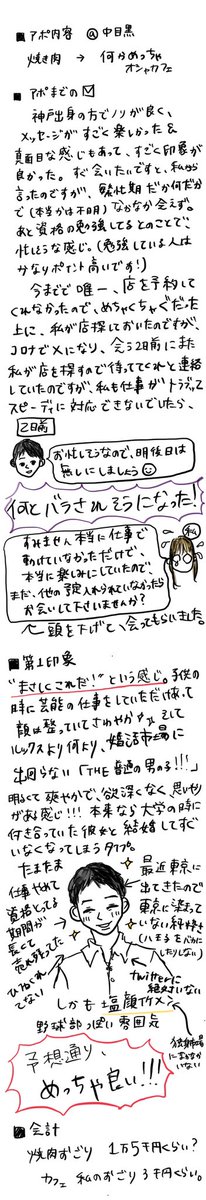 ■アポ内容 @中目黒
焼き肉 → 何かめっちゃ
オシャカフェ
■アポまでの☑
神戸出身の方でノリが良く、
メッセージがすごく楽しかった&
真面目な感じもあって、すごく印象が
良かった。すぐ会いたいですと、私から
言ったのですが、繁忙期だか何だか
で(本当かは不明)なかなか会えず。
あと資格の勉強してるとのことで、
忙しそうな感じ。(勉強している人は
かなりポイント高いです!)
今までで唯一、店を予約して
くれなかったので、めちゃくちゃぐだった
上に、私が店探しておいたのですが、
コロナでダメになり、会う2日前にまた
私が店を探すので待っててくれと連絡
していたのですが、私も仕事がトラブって
スピーディに対応できないでいたら、
2日前
お忙しそうなので、明後日は
無しにしましょう
何とバラされそうになった!
すみません本当に仕事で
動けていなかっただけで、
本当に楽しみにしていたので、
まだ、他の予定入れられていなかったら
お会いして下さいませんか?
私
← 頭を下げて、会ってもらいました。
■第1印象
"まさしくこれだ!"という感じ。子供の
時に芸能の仕事をしていただけあって
顔は整っていてさわやか。そして
ルックスより何より、婚活市場に
出回らない「THE 普通の男の子!!!」
明るくて爽やかで、欲深くなく思いやり
がある感じ!!!本来なら大学の時に
付き合っていた彼女と結婚してすぐ
いなくなってしまうタイプ。
たまたま
仕事やめて
資格とってる
期間が
長くて
売れ残ってた
ひねくれ
てない
最近東京に
出てきたので
東京に染まって
いない純粋さ
(ハチミツをバカに
したりしない)
twitterに
絶対いない
しかも塩顔イケメン
野球部っぽい雰囲気
予想通り、
めっちゃ良い!!!
■会計
焼肉おごり 1万5千円くらい?
カフェ 私のおごり 3千円くらい。